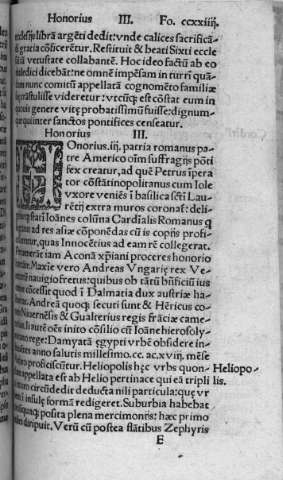 Honorius III. Fo. ccxxiiij.
ecclesijs librā argēti dedit: vnde calices sacrificā
di gratia cōficerētur. Restituit & beati Sixti eccle
vetustate collabantē. Hoc ideo factū ab eo
maledici dicebāt: ne omnē impēsam in turri quā
nunc comitū appellatā cognomēto familiæ
extrastulisse videretur: vtcūq; est cōstat eum in
genere vitę probatissimū fuisse: dignum-
que inter sanctos pontifices censeatur.
Honorius III.
HOnorius.iij. patria romanus pa-
tre Americo oīm suffragijs pōti
fex creatur, ad quē Petrus īpera
tor cōstātinopolitanus cum Iole
vxore veniēs ī basilica scti Lau-
rētij extra muros coronať: deli-
Ioānes colūna Cardīalis Romanus q
ad res asiæ cōponēdas cū is copijs profi-
quas Innocētius ad eam rē collegerat.
iam Aconā xp̄iani proceres honorio
Maxie vero Andreas Vngarię rex Ve-
nauigio fretus: quibus ob tātū bn̄ficiū ius
cōcessit quod ī Dalmatia dux austriæ ha-
Andreā quoq; secuti sunt & Hēricus co-
Niuernēsis & Gualterius regis frāciæ came-
inito cōsilio cū Ioāne hierosoly-
rege: Damyatā ęgypti vrbē obsidere in-
anno salutis millesimo. cc. ac xviij. mēse
proficiscūtur. Heliopolis hęc vrbs quon- Heliopo-
appellata est ab Helio pertinace qui eā tripli lis.
circūdedit deducta nili particula: quę vr
insulę formā redigeret. Suburbia habebat
posita plena mercimonijs: hæc primo
diripuit. Verū cū postea flatibus Zephyris
E